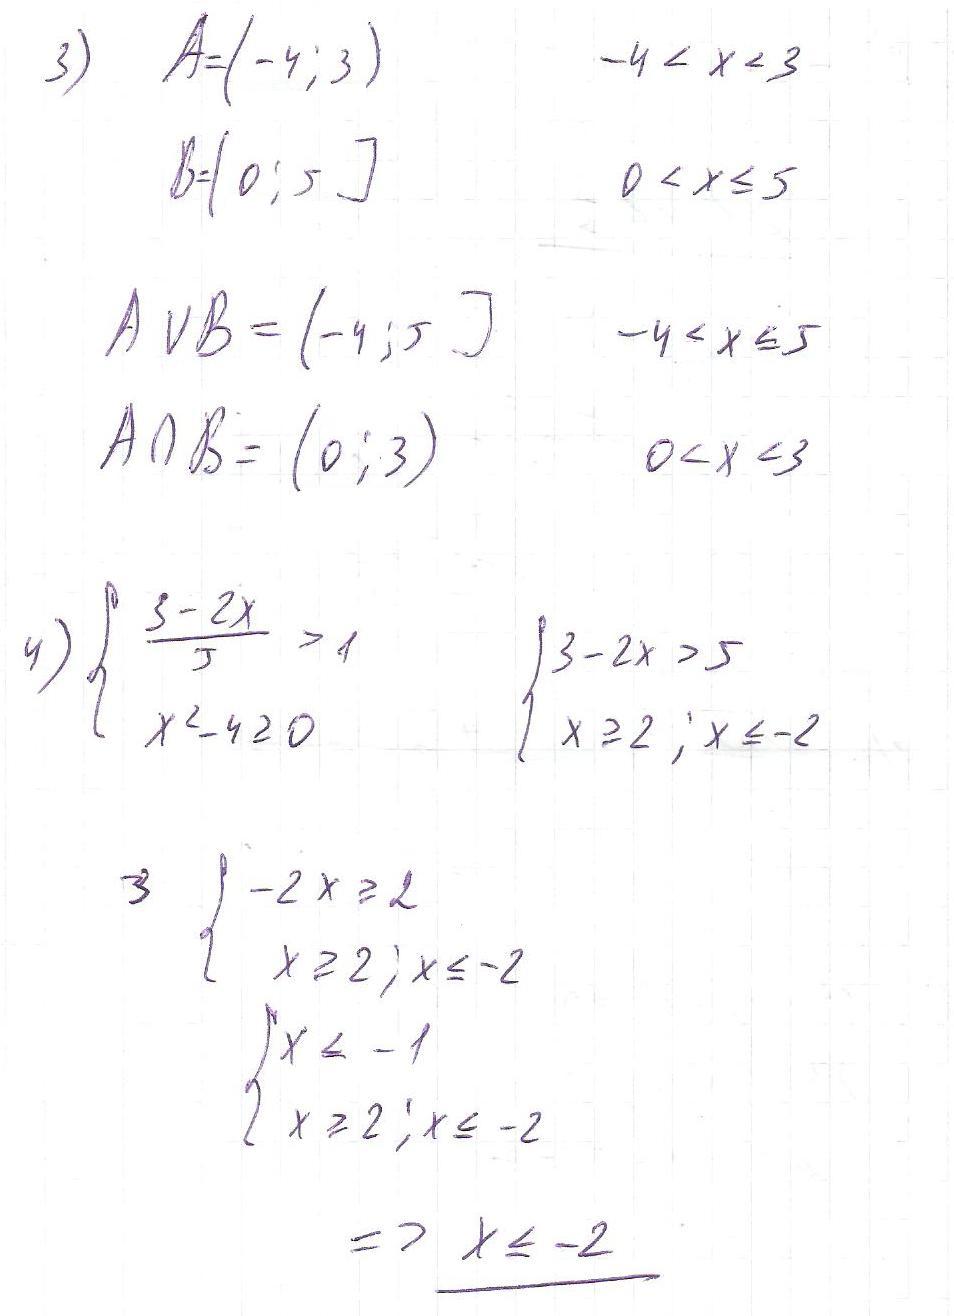 3) A=(-4;3) -4 < x < 3
B=(0;5] 0 < x ≤ 5
A∪B = (-4;5] -4 < x ≤ 5
A∩B = (0;3) 0 < x < 3
4) { (3-2x)/5 > 1 { 3-2x > 5
x²-4 ≥ 0 x ≥ 2 ; x ≤ -2
3 { -2x ≥ 2
x ≥ 2 ; x ≤ -2
{ x ≤ -1
x ≥ 2 ; x ≤ -2
=> x ≤ -2